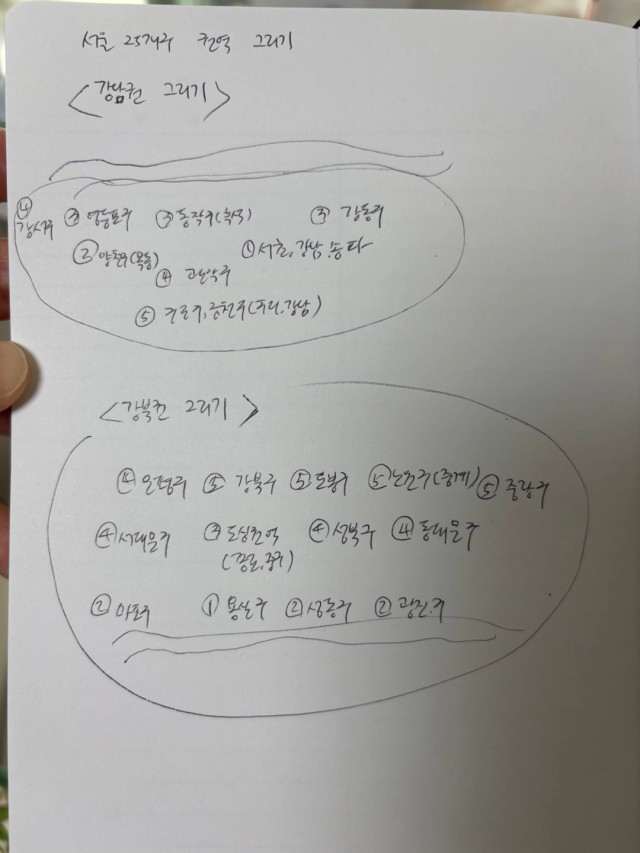 서울 25개구 권역 그리기
<강남권 그리기>
④ 강서구 ② 영등포구 ② 동작구(흑석) ③ 강동구
② 양천구(목동) ① 서초, 강남, 송파
④ 관악구
⑤ 구로구, 금천구
<강북권 그리기>
④ 은평구 ⑤ 강북구 ⑤ 도봉구 ⑤ 노원구(중계) ⑤ 중랑구
④ 서대문구 ③ 도심권역 ④ 성북구 ④ 동대문구
(종로, 중구)
② 마포구 ① 용산구 ② 성동구 ② 광진구